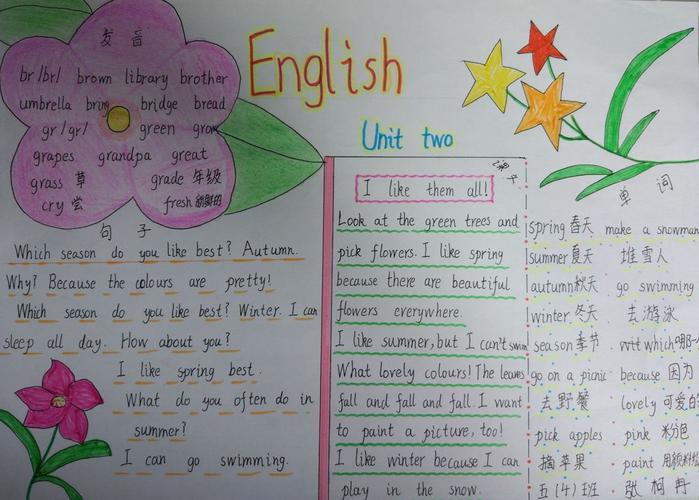 English
Unit two
发音
br/br/ brown library brother
umbrella bring bridge bread
gr/gr/ green grow
grapes grandpa great
grass 草 grade 年级
cry 尝 fresh 新鲜的
句子
Which season do you like best? Autumn.
Why? Because the colours are pretty!
Which season do you like best? Winter. I can
sleep all day. How about you?
I like spring best.
What do you often do in
summer?
I can go swimming.
课文
I like them all!
Look at the green trees and
pick flowers. I like spring
because there are beautiful
flowers everywhere.
I like summer, but I can't swim
What lovely colours! The leaves
fall and fall and fall. I want
to paint a picture, too!
I like winter because I can
play in the snow.
单词
spring 春天 make a snowman
summer 夏天 堆雪人
autumn 秋天 go swimming
winter 冬天 去游泳
season 季节 which 哪一
go on a picnic because 因为
去野餐 lovely 可爱的
pick apples pink 粉色
摘苹果 paint 用颜料绘
五(4)班 张柯冉